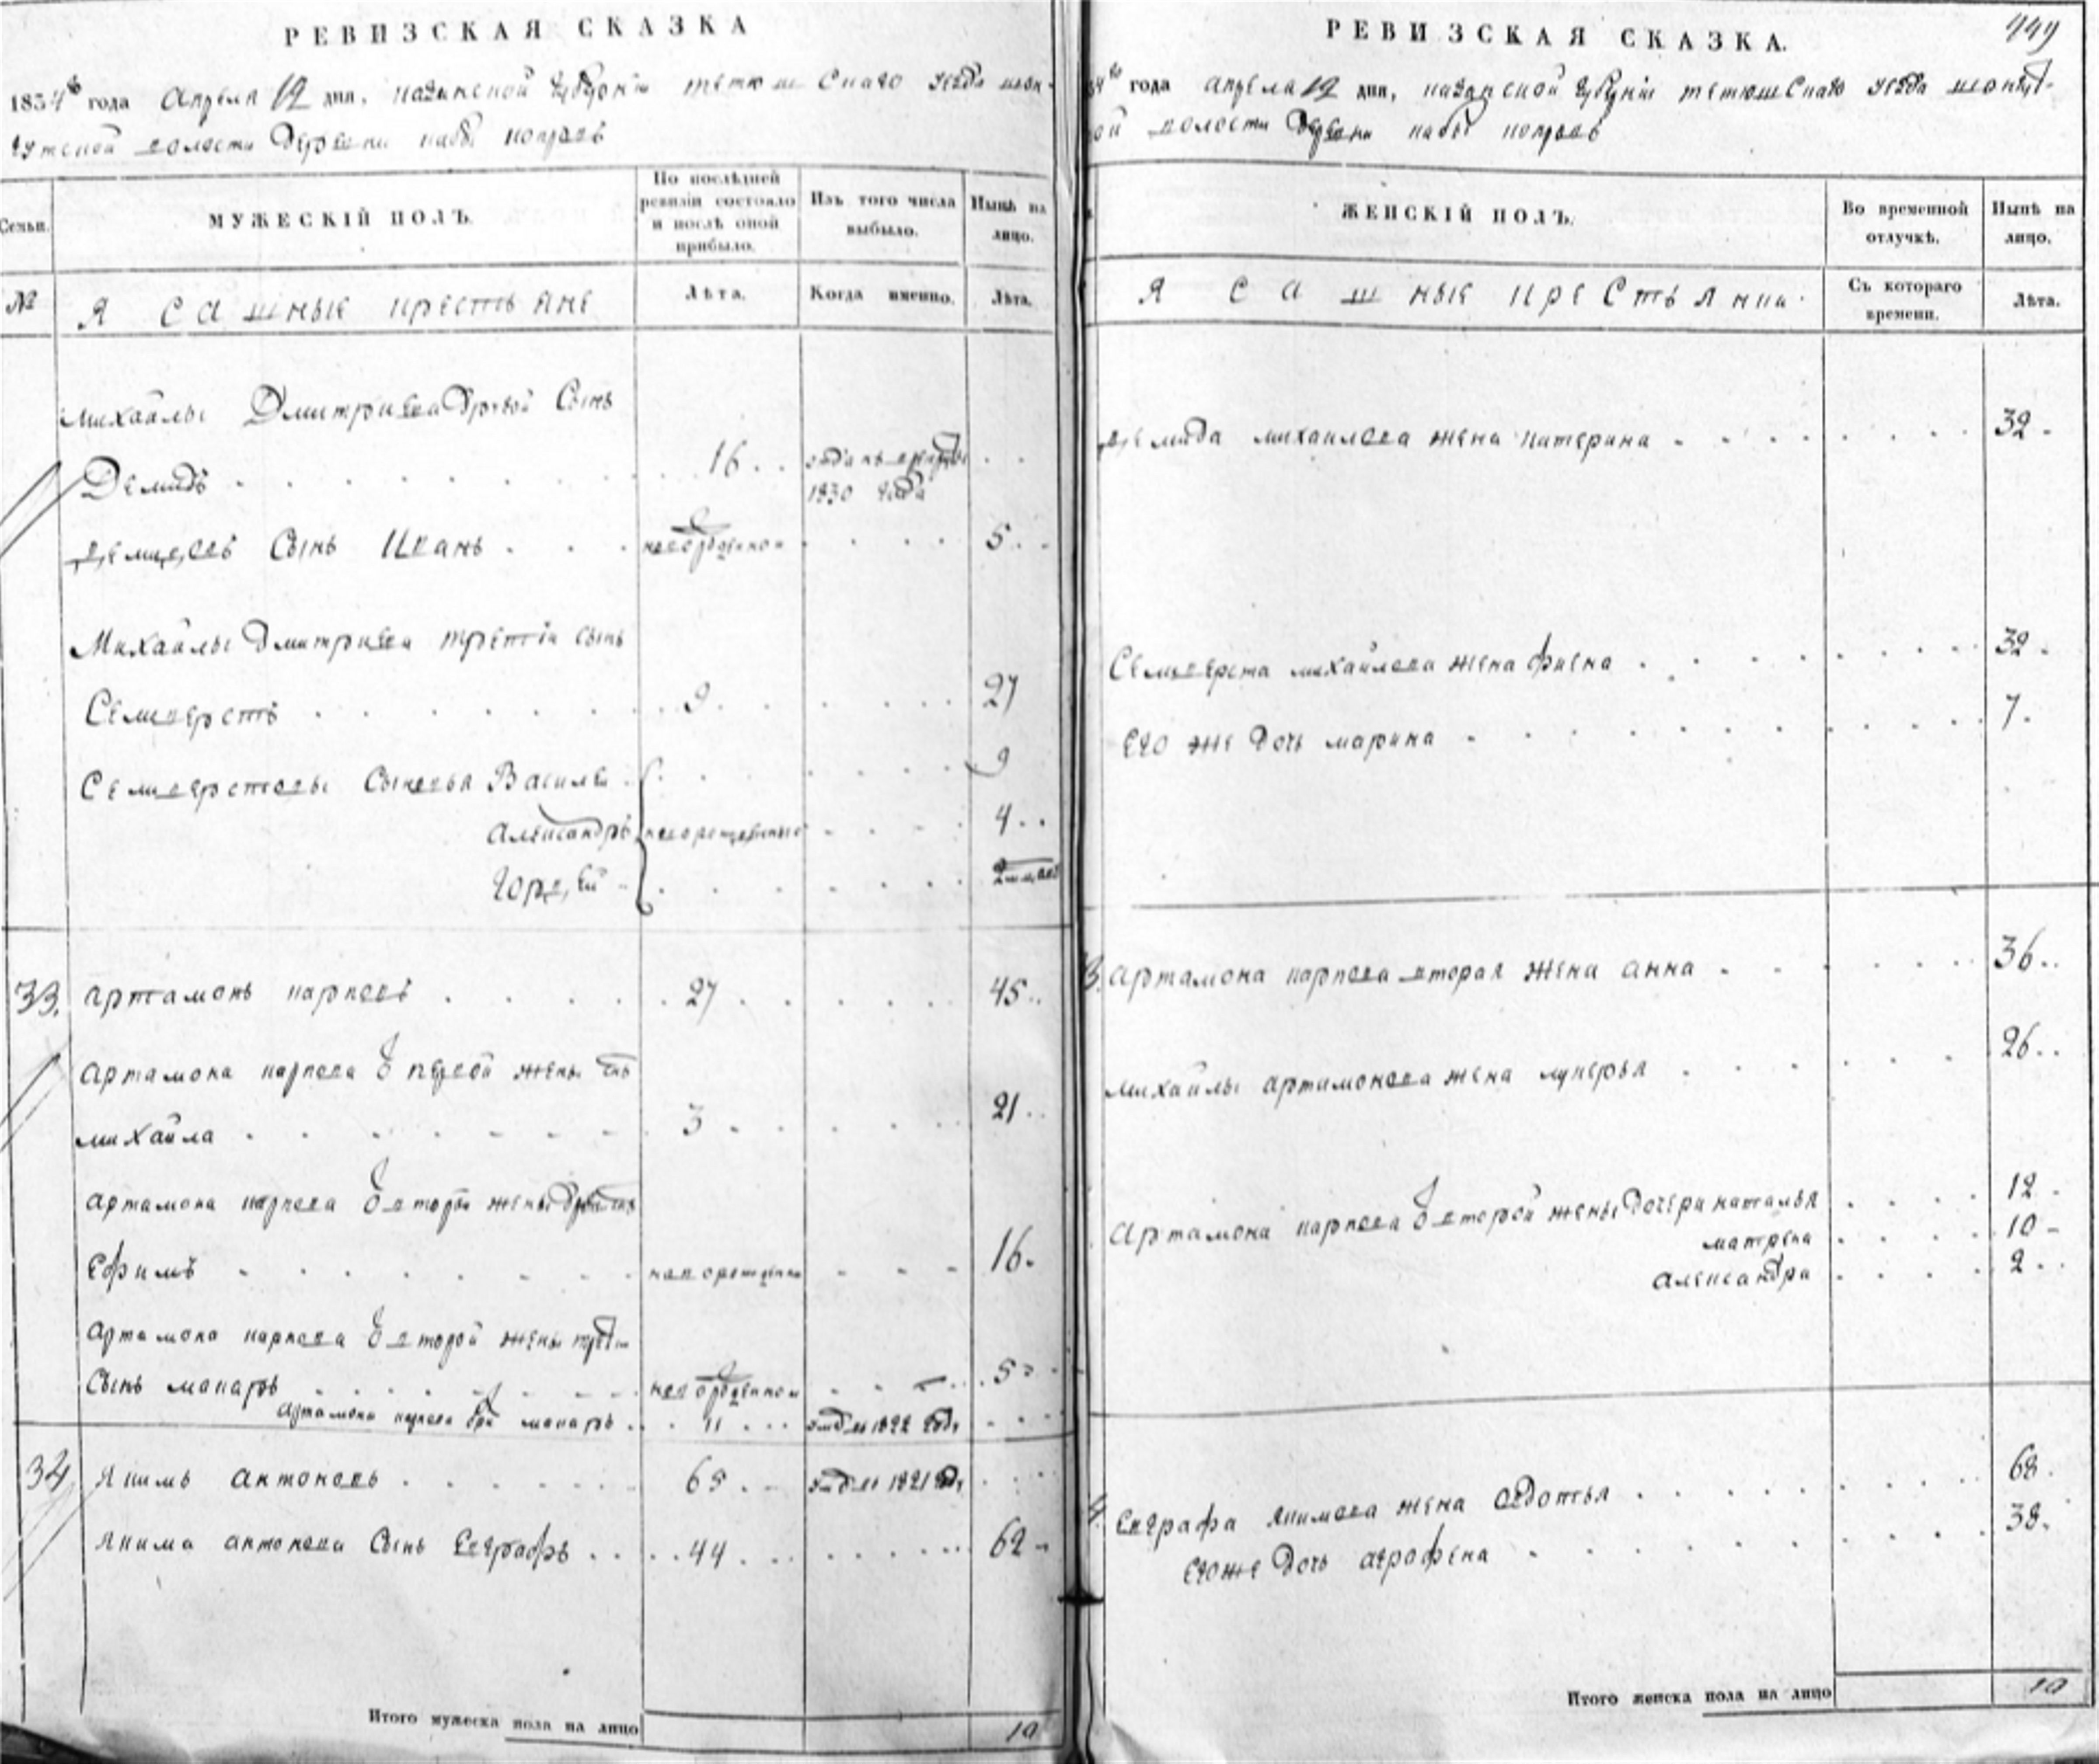 РЕВИЗСКАЯ СКАЗКА
1834го года Апреля 12 дня, казанской губернии тетюшскаго уезда шон-
гутской волости деревни кабы копрек
Семьи.
МУЖЕСКІЙ ПОЛЪ.
По послѣдней ревизіи состояло и послѣ оной прибыло.
Изъ того числа выбыло.
Нынѣ на лицо.
№
Ясашные крестьяне
Лѣта.
Когда именно.
Лѣта.
михайлы Дмитриева другой Сынъ
Демидъ 16 1830 года
Демидовъ Сынъ Иванъ новорожденной 5
Михайлы Дмитриева третiй сынъ
Селиверстъ 9 27
Селиверстовы Сыновья Василей 9
александръ новорожденные 4
гордѣй
33. артамонъ карповъ 27 45
артамона карпова от первой жены сынъ
михайла 3 21
артамона карпова от второй жены другой сынъ
Ефимъ новорожденной 16
артамона карпова от второй жены трет
Сынъ макаръ новорожденной 5
артамона карпова братъ макаръ 11 1822 году
34 якимъ антоновъ 65 1821 году
якима антонова Сынъ Евграфъ 44 62
Итого мужеска пола на лицо 10
449
РЕВИЗСКАЯ СКАЗКА.
34го года апреля 12 дня, казанской губернии тетюшскаго уезда шонгут-
ой волости деревни кабы копрек
ЖЕНСКІЙ ПОЛЪ.
Во временной отлучкѣ.
Нынѣ на лицо.
Ясашные крестьянки
Съ котораго времени.
Лѣта.
демида михаилова жена катерина 32
Селиверста михайлова жена фиена 32
его же дочь марина 7
3. артамона карпова вторая жена анна 36
михайлы артамонова жена лукерья 26
артамона карпова от второй жены дочери наталья 12
матрена 10
александра 2
4. Евграфа якимова жена авдотья 68
его же дочь аграфена 38
Итого женска пола на лицо 10